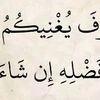 فَ يُغْنِيكُم
فَضْلِهِ إِن شَا